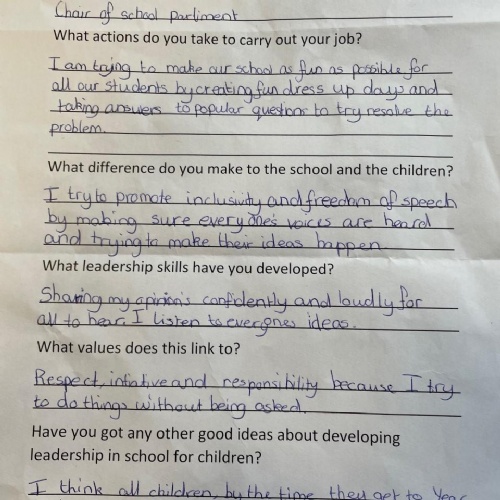 Chair of school parliment
What actions do you take to carry out your job?
I am trying to make our school as fun as possible for
all our students by creating fun dress up days and
taking answers to popular questions to try resolve the
problem.
What difference do you make to the school and the children?
I try to promote inclusivity and freedom of speech
by making sure everyone's voices are heard
and trying to make their ideas happen.
What leadership skills have you developed?
Sharing my opinion's confidently and loudly for
all to hear. I listen to everyones ideas.
What values does this link to?
Respect, intiative and responsibility because I try
to do things without being asked.
Have you got any other good ideas about developing
leadership in school for children?
I think all children, by the time they get to Year